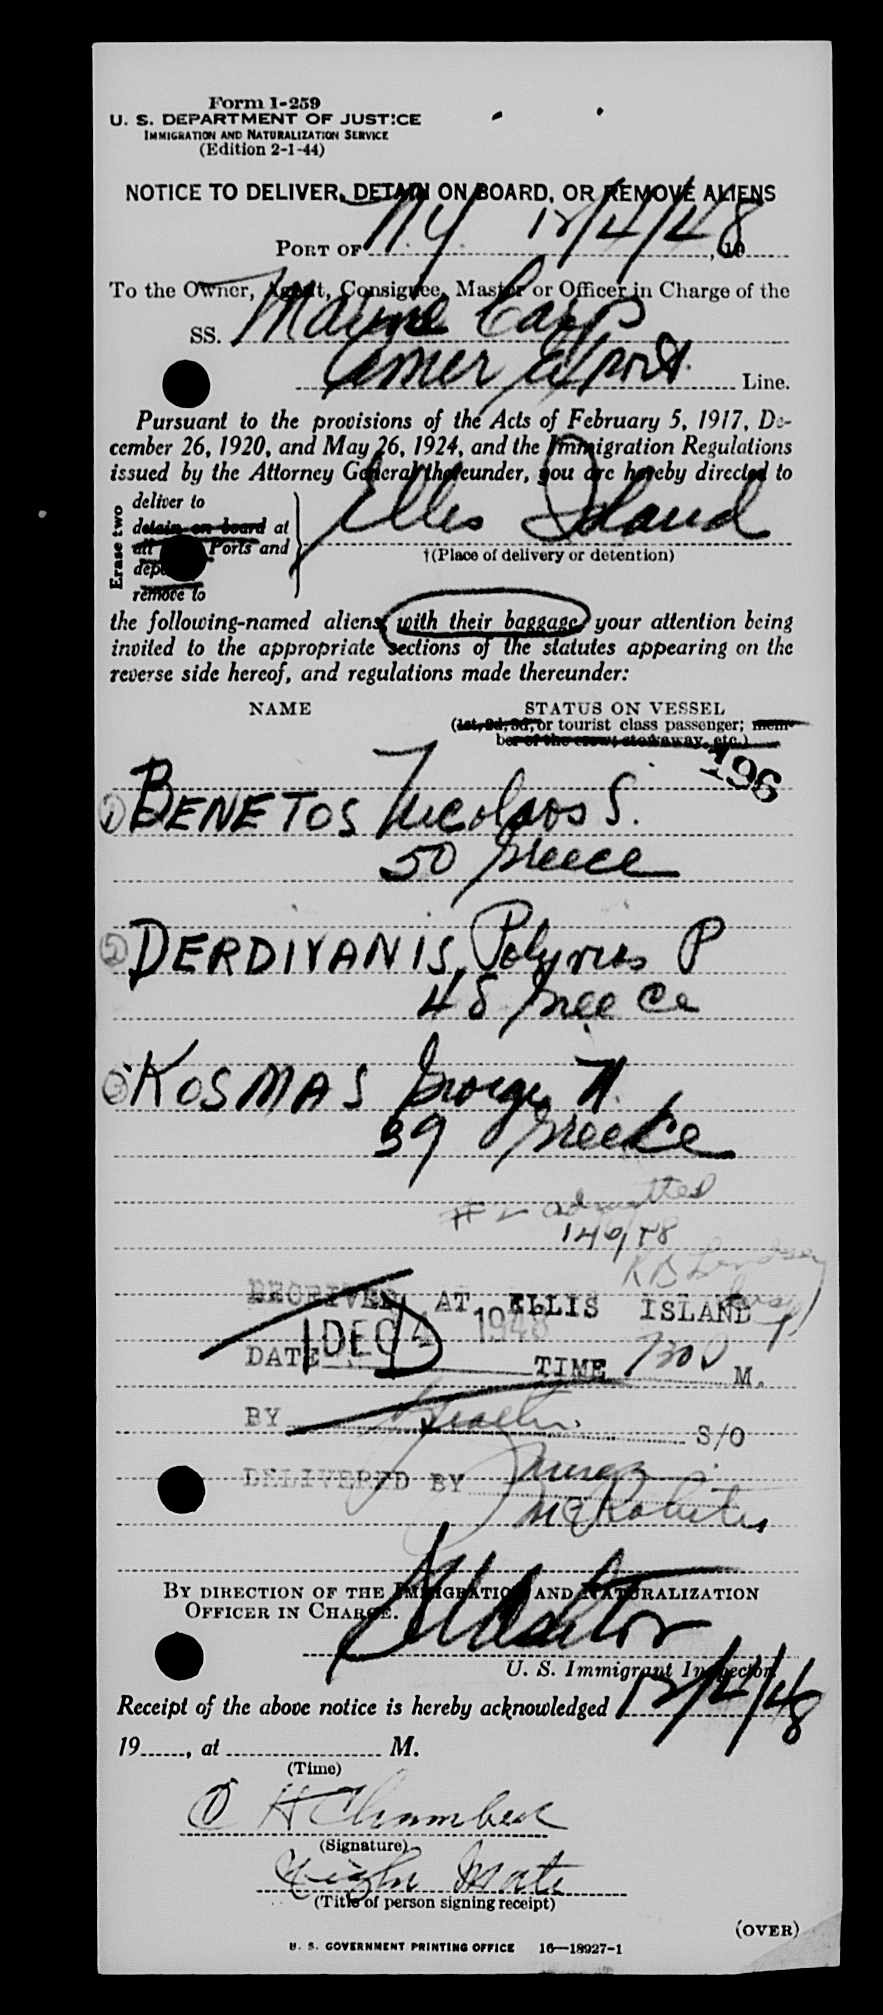 Form I-259
U. S. DEPARTMENT OF JUSTICE
IMMIGRATION AND NATURALIZATION SERVICE
(Edition 2-1-44)
NOTICE TO DELIVER, DETAIN ON BOARD, OR REMOVE ALIENS
PORT OF N.Y. 12/4/48, 19
To the Owner, Agent, Consignee, Master or Officer in Charge of the
SS. Marine Carp
Amer Export Line.
Pursuant to the provisions of the Acts of February 5, 1917, De-
cember 26, 1920, and May 26, 1924, and the Immigration Regulations
issued by the Attorney General thereunder, you are hereby directed to
Erase two
deliver to
detain on board at
all Ports and
remove to
Ellis Island
†(Place of delivery or detention)
the following-named aliens, with their baggage, your attention being
invited to the appropriate sections of the statutes appearing on the
reverse side hereof, and regulations made thereunder:
NAME STATUS ON VESSEL
(1st, 2d, 3d, or tourist class passenger; mem-
ber of the crew; stowaway, etc.)
196
1 BENETOS Nicolaos S.
50 Greece
2 DERDIYANIS, P
48 Greece
3 KOSMAS George N.
39 Greece
#2 admitted
RECEIVED AT ELLIS ISLAND
DATE DEC 4 1948 TIME M.
BY S/O
DELIVERED BY
BY DIRECTION OF THE IMMIGRATION AND NATURALIZATION
OFFICER IN CHARGE.
U. S. Immigrant Inspector.
Receipt of the above notice is hereby acknowledged 12/4/48
19, at M.
(Time)
(Signature)
Mate
(Title of person signing receipt)
(OVER)
U. S. GOVERNMENT PRINTING OFFICE 16—18927-1